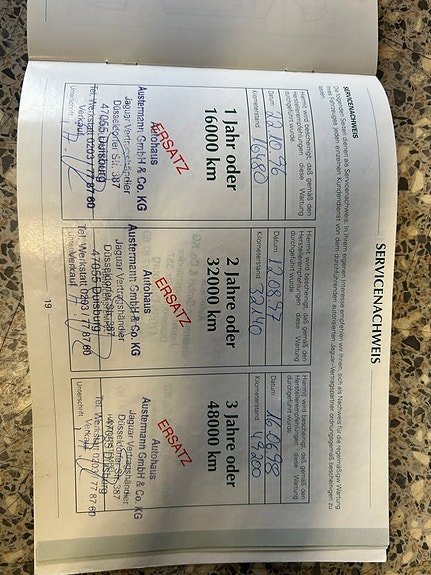 SERVICENACHWEIS
SERVICENACHWEIS
Die folgenden Seiten dienen als Servicenachweis: in Ihrem eigenen Interesse empfehlen wir Ihnen, sich als Nachweis für die regelmäßige Wartung
Ihres Fahrzeuges jeden einzelnen Kundendienst von dem durchführenden autorisierten Jaguar-Vertragspartner ordnungsgemäß bescheinigen zu
lassen.
Hiermit wird bescheinigt, daß gemäß den
Herstellerempfehlungen diese Wartung
durchgeführt wurde.
Datum 22.10.96
Kilometerstand 16480
1 Jahr oder
16000 km
ERSATZ
Autohaus
Austermann GmbH & Co. KG
Jaguar Vertragshändler
Düsseldorfer Str. 387
47055 Duisburg
Tel. Werkstatt 0203 / 77 87 60
Verkauf
Unterschrift
Hiermit wird bescheinigt, daß gemäß den
Herstellerempfehlungen diese Wartung
durchgeführt wurde.
Datum 12.08.97
Kilometerstand 32140
2 Jahre oder
32000 km
ERSATZ
Autohaus
Austermann GmbH & Co. KG
Jaguar Vertragshändler
Düsseldorfer Str. 387
47055 Duisburg
Tel. Werkstatt 0203 / 77 87 60
Verkauf
Unterschrift
Hiermit wird bescheinigt, daß gemäß den
Herstellerempfehlungen diese Wartung
durchgeführt wurde.
Datum 16.06.98
Kilometerstand 47200
3 Jahre oder
48000 km
ERSATZ
Autohaus
Austermann GmbH & Co. KG
Jaguar Vertragshändler
Düsseldorfer Str. 387
47055 Duisburg
Tel. Werkstatt 0203 / 77 87 60
Verkauf
Unterschrift
19